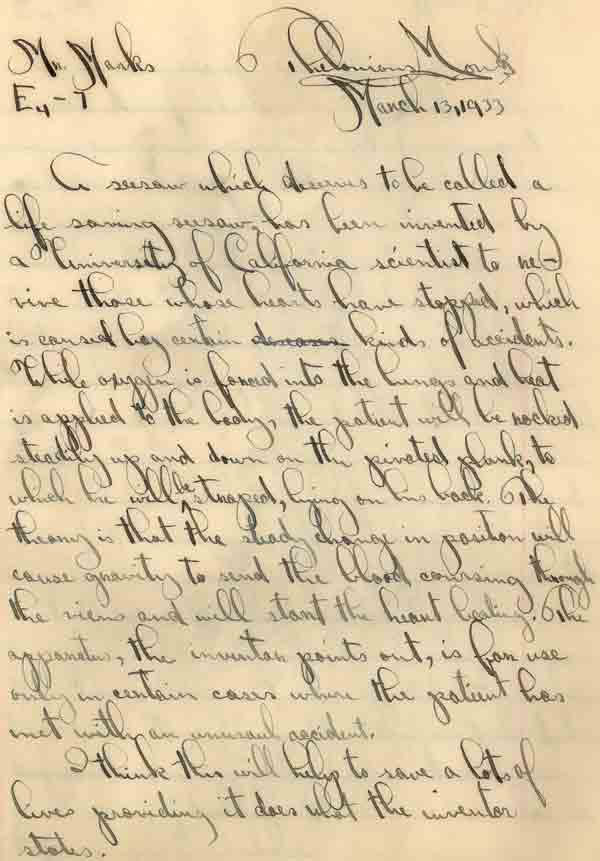 Mr. Marks Thelonious Monk
E4-7 March 13, 1933
A seesaw which deserves to be called a
life saving seesaw, has been invented by
a University of California scientist to re-
vive those whose hearts have stopped, which
is caused by certain diseases kinds of accidents.
While oxygen is forced into the lungs and heat
is applied to the body, the patient will be rocked
steadily up and down on the pivoted plank, to
which he will be straped, lying on his back. The
theory is that the steady change in position will
cause gravity to send the blood coursing through
the viens and will start the heart beating. The
apparatus, the inventor points out, is for use
only in certain cases where the patient has
met with an unusual accident.
I think this will help to save a lots of
lives providing it does what the inventor
states.